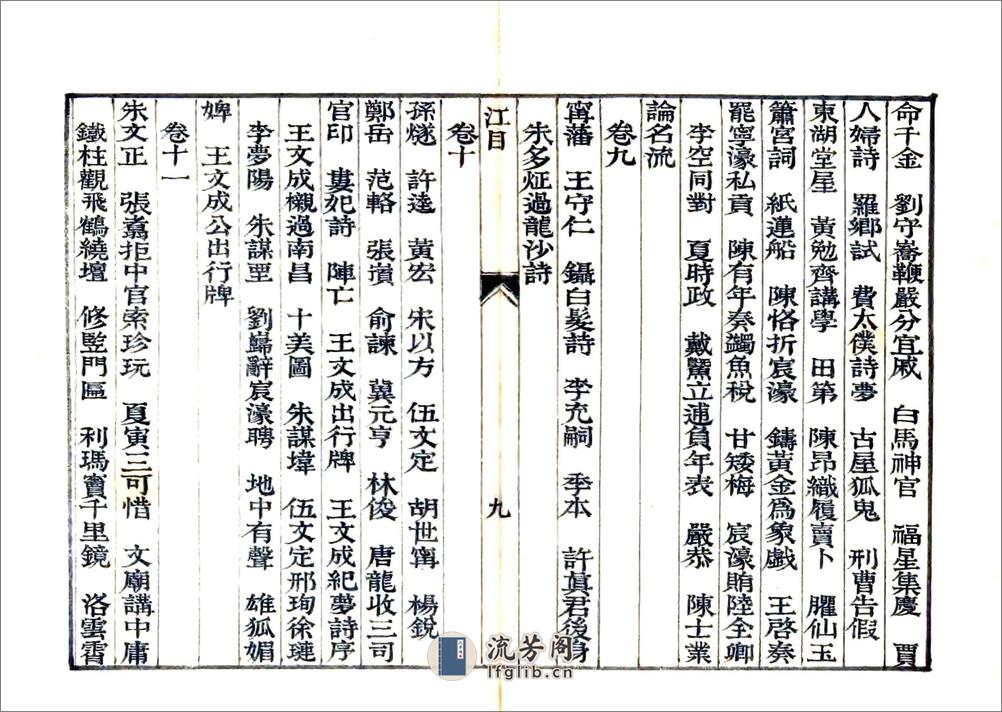 命千金　劉守畚鞭嚴分宜戚　白馬神官　福星集慶　賈
人婦詩　羅鄉試　費太僕詩夢　古屋狐鬼　刑曹告假
東湖堂星　黃勉齊講學　田第　陳昂織履賣卜　臞仙玉
簫宮詞　紙蓮船　陳恪折宸濠　鑄黃金爲象戲　王啓奏
罷寧濠私貢　陳有年奏蠲魚稅　甘矮梅　宸濠賄陸全卿
李空同對　夏時政　戴鱀立逋負年表　嚴恭　陳士業
論名流
卷九
甯藩　王守仁　鑷白髮詩　李充嗣　季本　許眞君後身
朱多炡過龍沙詩
江目
九
卷十
孫燧　許逵　黃宏　宋以方　伍文定　胡世甯　楊銳
鄭岳　范輅　張䝼　俞諫　冀元亨　林俊　唐龍收三司
官印　婁妃詩　陣亡　王文成出行牌　王文成紀夢詩序
王文成櫬過南昌　十美圖　朱謀㙔　伍文定邢珣徐璉
李夢陽　朱謀㙈　劉歸辭宸濠聘　地中有聲　雄狐媚
婢　王文成公出行牌
卷十一
朱文正　張翥拒中官索珍玩　夏寅三可惜　文廟講中庸
鐵柱觀飛鶴繞壇　修監門區　利瑪竇千里鏡　洛雲霄
流芳阁
lfglib.cn